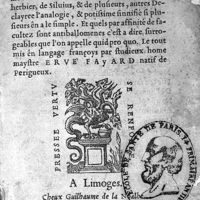 herbier, de Siluius, & de plusieurs, autres De-
clayrer l'analogie, & potissime sinnifie si plu-
sieurs en à le simple. Et quels par affinité de fa-
cultez sont antiballomenes c'est a dire, surro-
geables que l'on appelle quid pro quo. Le tout
mis en langage françoys par studieux home
maystre ERVE FAYARD natif de
Perigueux.
PRESSEE VERTU
SE RENF
A Limoges.
Cheux Guilhaume de la Noalhe
DE PARIS